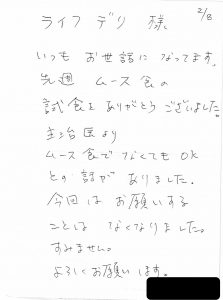 ライフ デリ 様 2/8
いつも お世話に なってます。
先週 ムース食の
試食を ありがとう ございました。
主治医より
ムース食で なくても OK
との 話が ありました。
今回は お願いする
ことは なくなりました。
すみません。
よろしくお願いします。